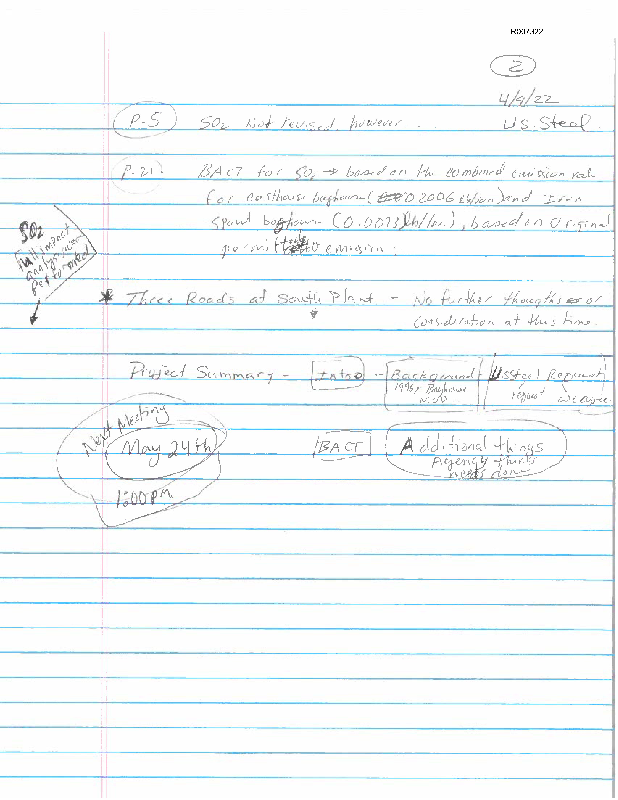 R007322
2
4/9/22
P-5 SO2 Not revised, however . .
U.S. Steel.
P.21. BACT for SO2 → based on the combined emission rate
for casthouse baghouse ( 0.2006 lb/ton) and Iron
spout baghouse (0.0073 lb/ton), based on original
permitted emission.
SO2
full impact
analysis
performed
* Three Roads at South Plant - No further thoughts or
consideration at this time.
Project Summary - Intro - Background US Steel Request
1996, Baghouse
NOV
request
Next Meeting
May 24th
1:00 PM
BACT
Additional things
Agency thinks
needs done